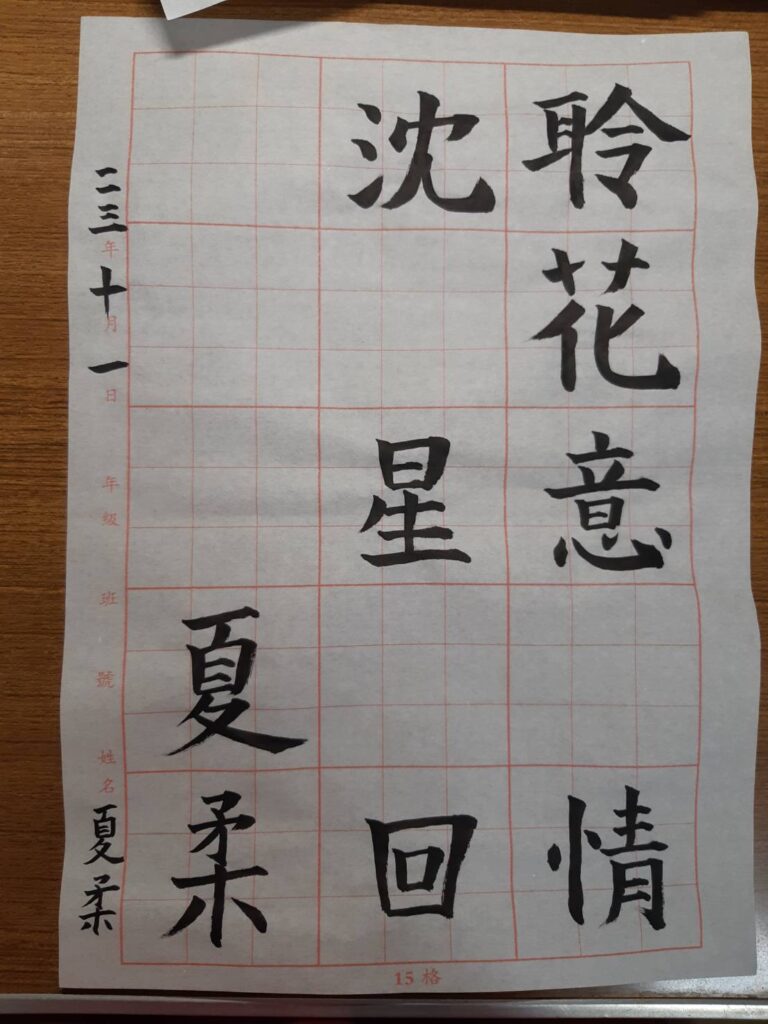 聆花意情
沈星回
夏柔
二三年十月一日 年級 班 號 姓名夏柔
15格